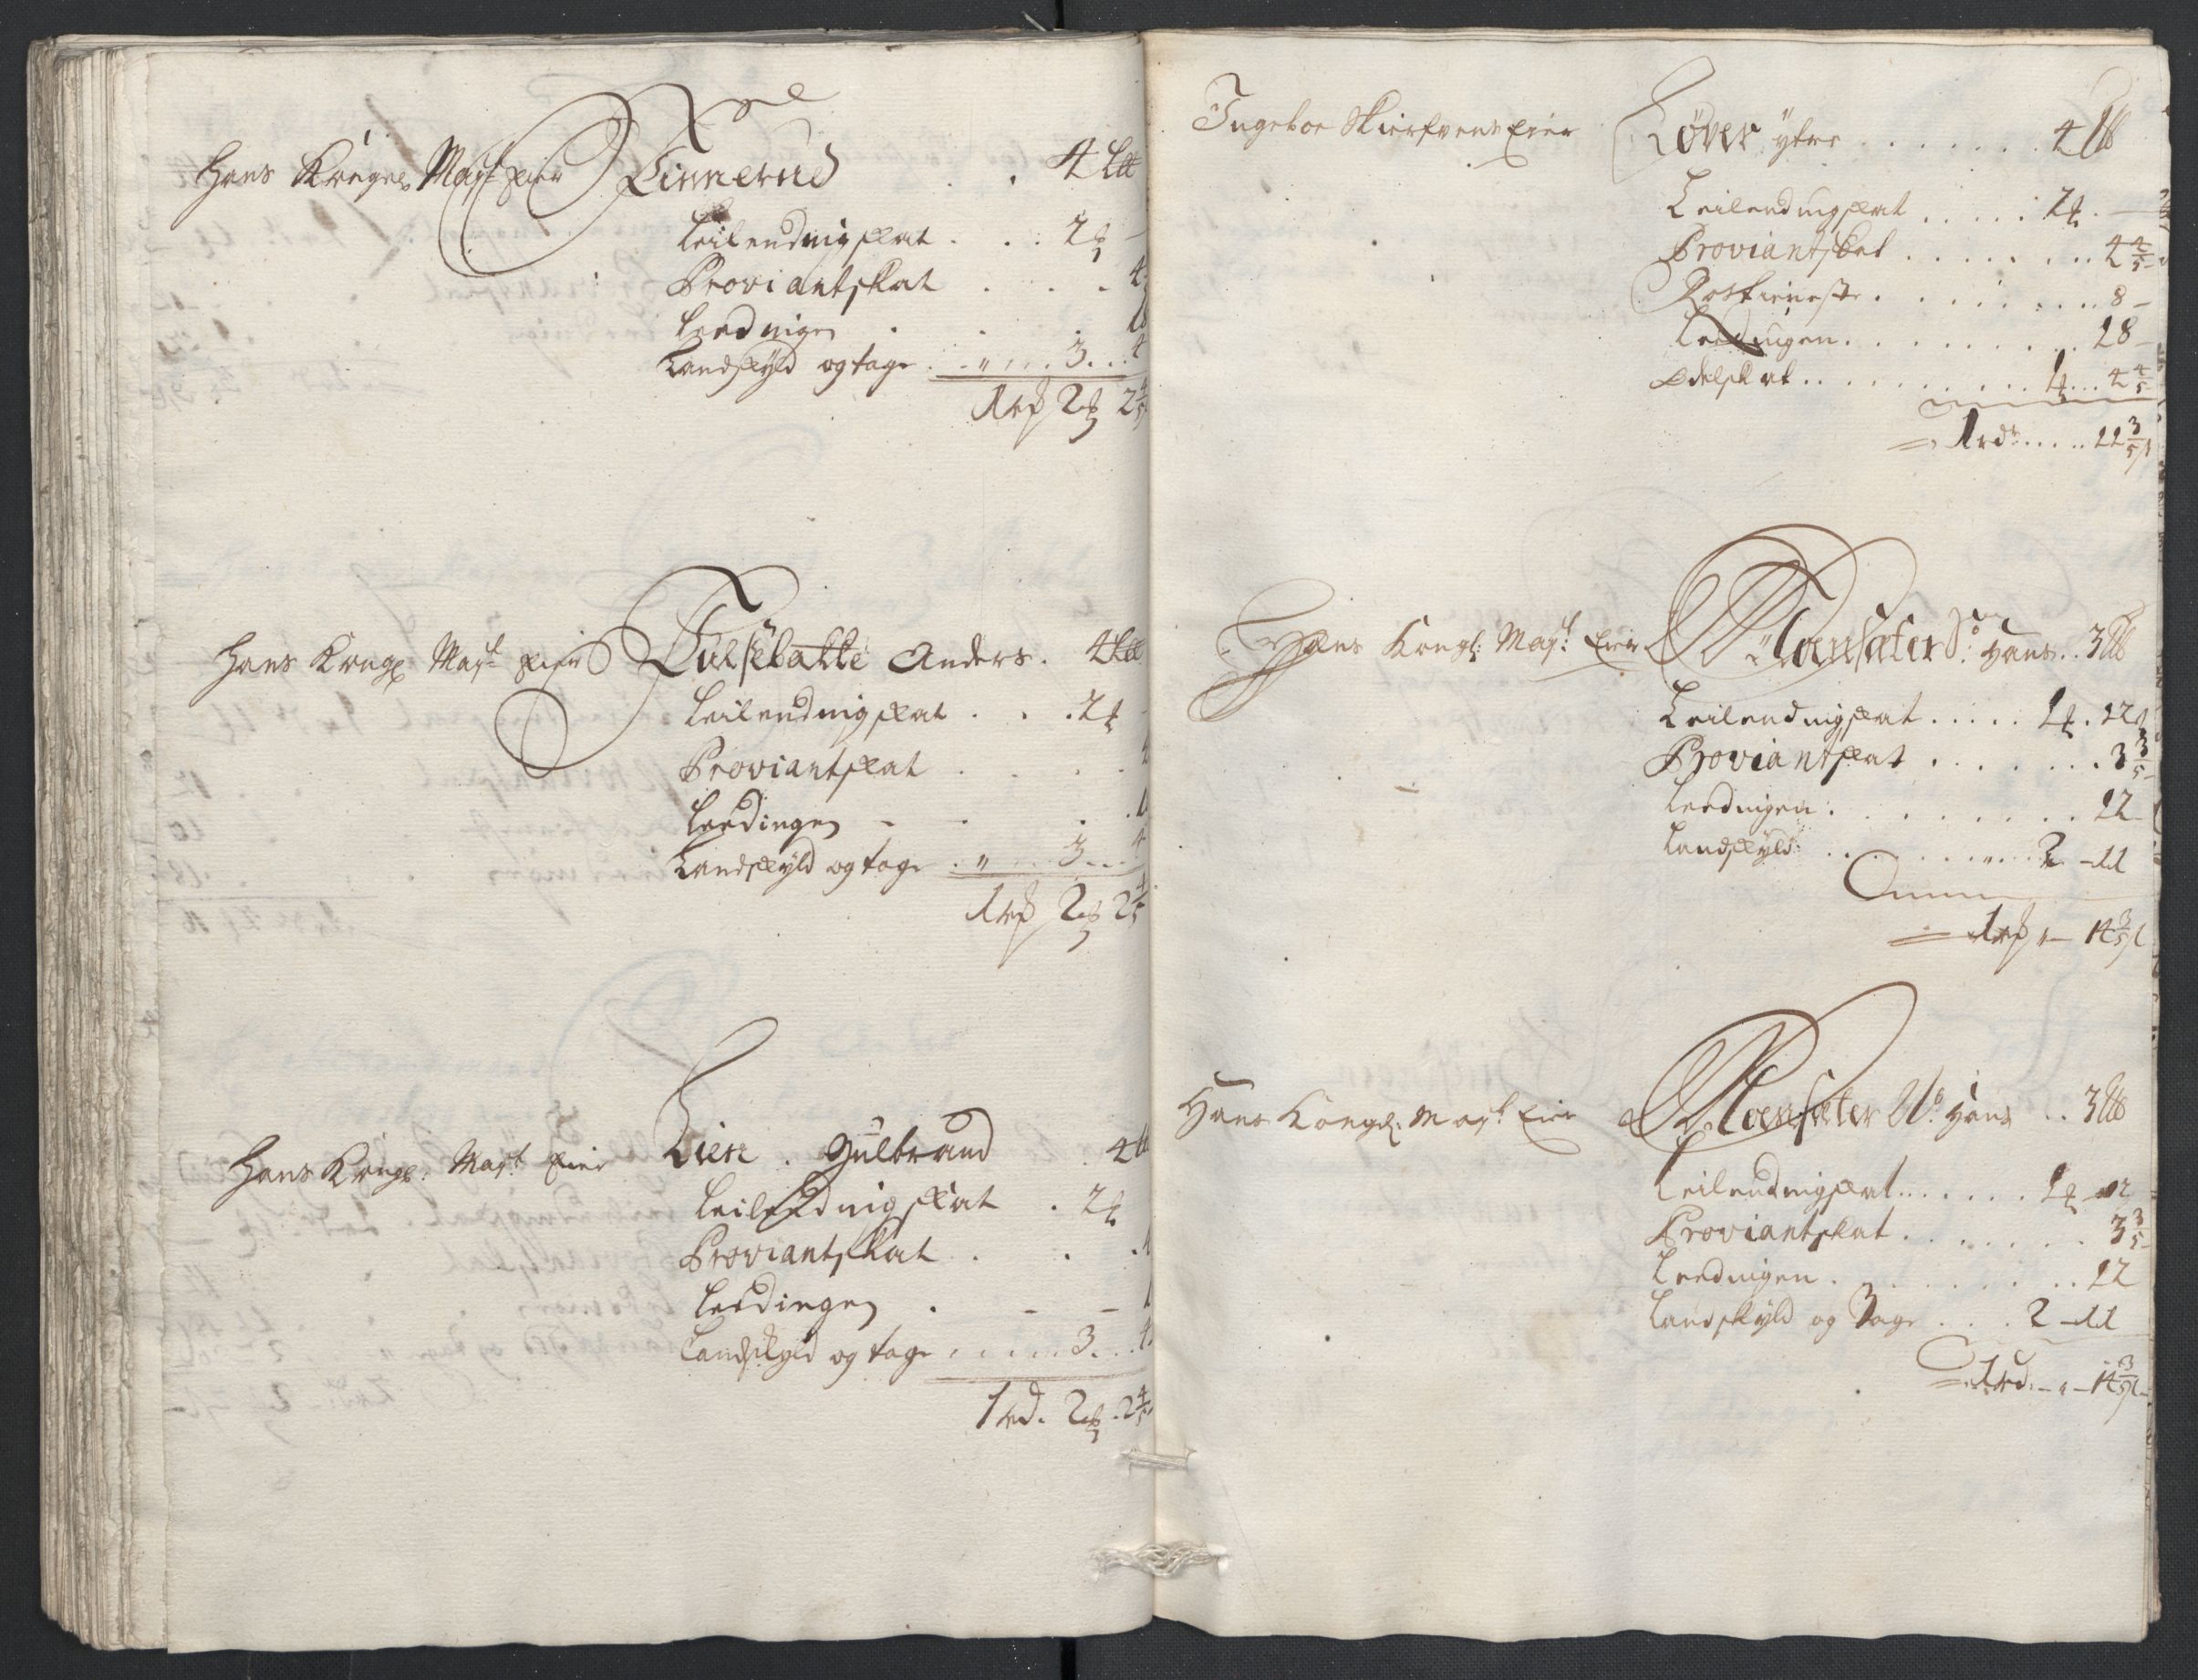 Hans Kongel Mayt Eier Finnerud . . 4 Ltt
Leilendingskat . . : 2 –
Proviantskat . . . 4
Leedingen . . .
Landskyld og tage . „ . . . 3 . . . 4
1 rd 2 2 4/5
Hans Kongl Mayt Eier Fulsebakke Anders . 4 Ltt
Leilendingskat . . . 2
Proviantskat . . . .
Leedingen – – .
Landskyld og tage . „ . . . 3 . . . 4
1 rd 2 2 4/5
Hans Kongl: Mayt Eier Lien . Gulbrand . 4
Leilendingskat . 2
Proviantskat . . .
Leedingen . – –
Landskyld og tage . . . . . 3 . . . 4
1 rd. 2 . 2 4/5
Ingeboe Skierfvens Eier ytre . . . . . . . 4
Leilendingskat . . . . : 2 . –
Proviantskat . . . . . . . 4 4/5 –
Rostieneste . . . . . . . . 8 –
Leedingen . . . . . . . . 18 –
Odelskat . . . . . . . . . . 1 . . . 4 4/5
= 1 rd . . . . . 11 3/5
Hans Kongl: Mayt: Eier So: Hans . . 3
Leilendingskat . . . . . 1 . 12
Proviantskat . . . . . . . 3 3/5
Leedingen : . . . . . . . . 12
Landskyld: . . . . . . „ . . . 2 – 11
= 1 rd „ – 14 3/5
Hans Kongl: Mayt: Eier No: Hans . . 3
Leilendingskat . . . . . . 1 – 12
Proviantskat . . . . . . . 3 3/5 –
Leedingen . . . . . . . . 12
Landskyld og Tage . . . 2 – 11
= 1 rd. – „ – 14 3/5